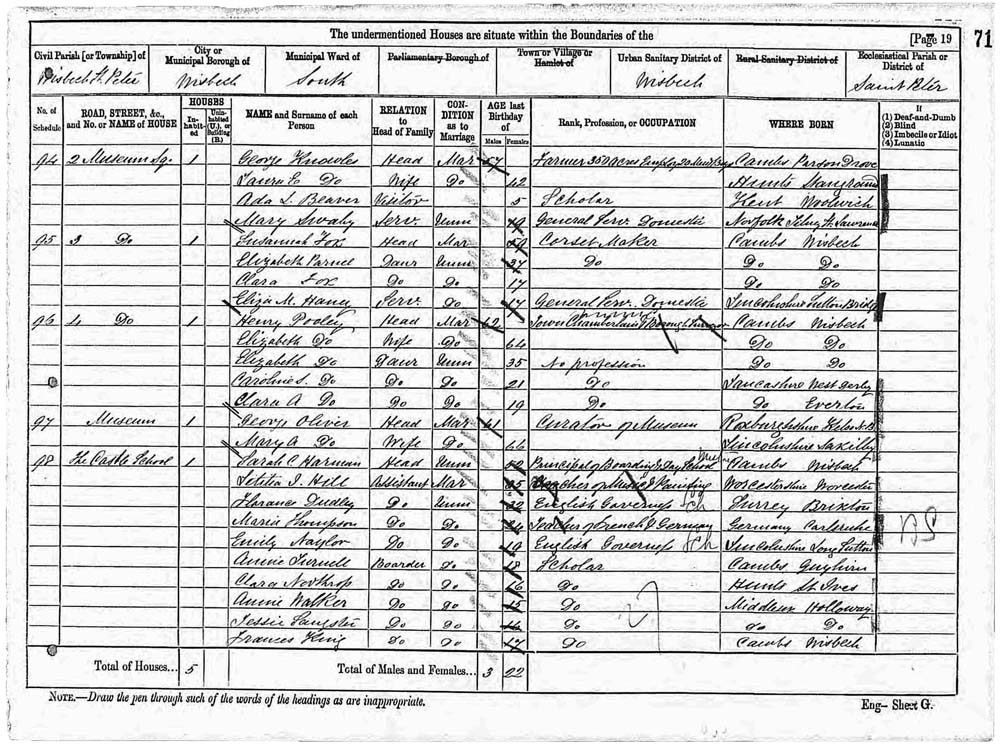 The undermentioned Houses are situate within the Boundaries of the
[Page 19
71
Civil Parish [or Township] of
City or Municipal Borough of
Municipal Ward of
Parliamentary Borough of
Town or Village or Hamlet of
Urban Sanitary District of
Rural Sanitary District of
Ecclesiastical Parish or District of
Wisbech St. Peter Wisbech South Wisbech Saint Peter
No. of Schedule
ROAD, STREET, &c., and No. or NAME of HOUSE
HOUSES
Inhabited
Uninhabited (U.), or Building (B.)
NAME and Surname of each Person
RELATION to Head of Family
CONDITION as to Marriage
AGE last Birthday of
Males
Females
Rank, Profession, or OCCUPATION
WHERE BORN
If
(1) Deaf-and-Dumb
(2) Blind
(3) Imbecile or Idiot
(4) Lunatic
94 2 Museum Sq. 1 George Knowles Head Mar 57 Farmer Cambs Parson Drove
Laura E Do Wife Do 42 Hunts Stanground
Ada L Beaver Visitor 5 Scholar Kent Woolwich
Mary Swaby Serv. Unm 19 General Serv. Domestic Norfolk
95 3 Do 1 Susannah Fox Head Mar Corset Maker Cambs Wisbech
Elizabeth Parnel Daur Unm 27 Do Do Do
Clara Fox Do Do 17 Do Do
Eliza M. Haney Serv. Do 17 General Serv. Domestic Lincolnshire Sutton Bridge
96 4 Do 1 Henry Pooley Head Mar 62 Town Chamberlain & Borough Cambs Wisbech
Elizabeth Do Wife Do 64 Do Do
Elizabeth Do Daur Unm 35 No profession Do Do
Caroline S. Do Do Do 21 Do Lancashire West Derby
Clara A Do Do Do 19 Do Do Everton
97 Museum 1 George Oliver Head Mar 61 Curator of Museum Roxburghshire Kelso N.B.
Mary A Do Wife Do 66 Lincolnshire Saxilby
98 The Castle School 1 Sarah C Harman Head Unm Principal of Boarding & Day School Cambs Wisbech
Letitia J. Hill Assistant Mar 35 Teacher of Music & Painting Worcestershire Worcester
Florance Dudley Do Unm 22 English Governess Sch Surrey Brixton
Maria Thompson Do Do 24 Teacher of French & German Germany Carlsruhe
Emily Naylor Do Do 19 English Governess Sch Lincolnshire Long Sutton
Annie Boarder Do 18 Scholar Cambs Guyhirn
Clara Northrop Do Do 16 Do Hunts St. Ives
Annie Walker Do Do 15 Do Middlesex Holloway
Jessie Sangster Do Do 14 Do Do Do
Frances King Do Do 17 Do Cambs Wisbech
Total of Houses... 5 Total of Males and Females... 3 22
NOTE.—Draw the pen through such of the words of the headings as are inappropriate.
Eng— Sheet G.